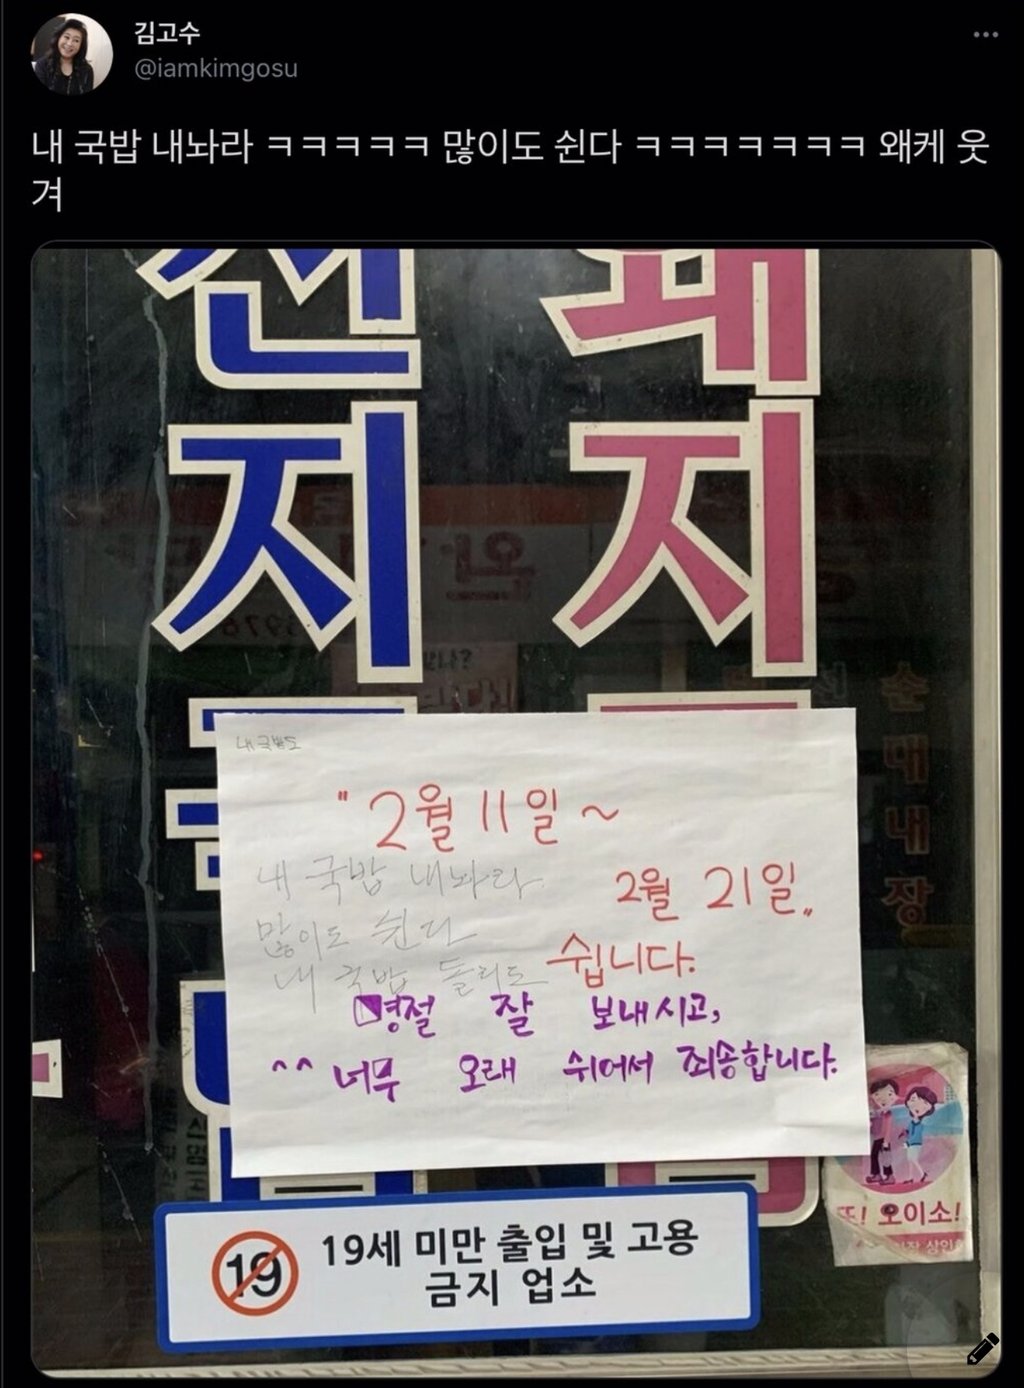 김고수
@iamkimgosu
내 국밥 내놔라 ㅋㅋㅋㅋㅋ 많이도 쉰다 ㅋㅋㅋㅋㅋㅋㅋ 왜케 웃
겨
선지
돼지
내 국밥도
" 2월 11일 ~
2월 21일 „
쉽니다.
내 국밥 내놔라
많이도 쉰다
내 국밥 돌리도
명절 잘 보내시고,
^^ 너무 오래 쉬어서 죄송합니다.
순대내장
또! 오이소!
19
19세 미만 출입 및 고용
금지 업소